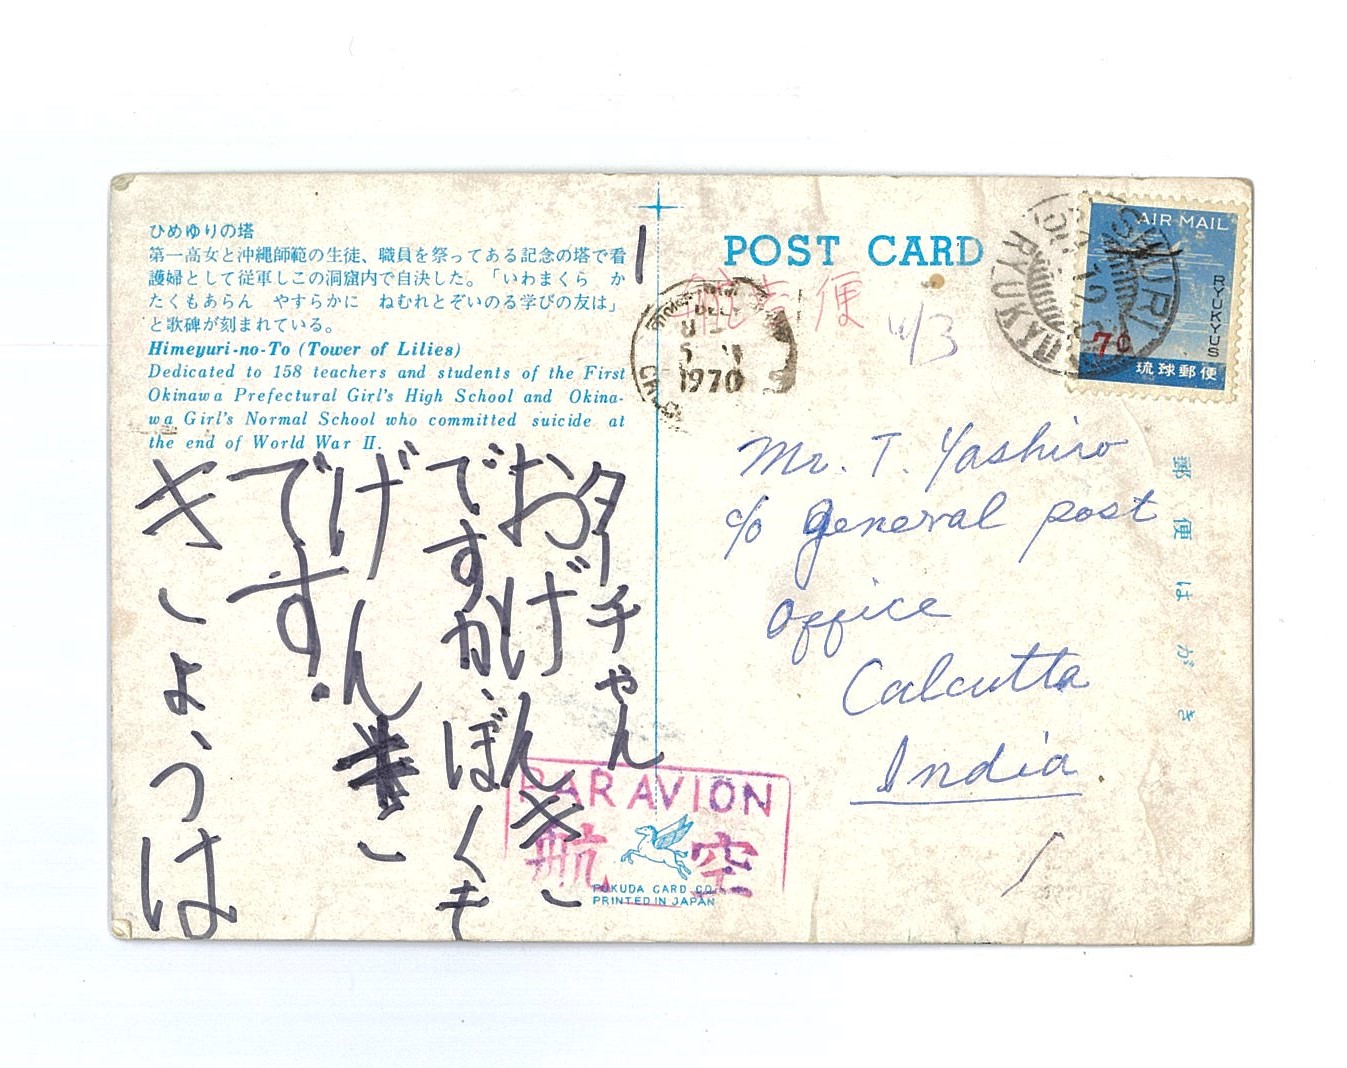 ひめゆりの塔
第一高女と沖縄師範の生徒、職員を祭ってある記念の塔で看
護婦として従軍しこの洞窟内で自決した。「いわまくら　か
たくもあらん　やすらかに　ねむれとぞいのる学びの友は」
と歌碑が刻まれている。
Himeyuri-no-To (Tower of Lilies)
Dedicated to 158 teachers and students of the First
Okinawa Prefectural Girl's High School and Okina-
wa Girl's Normal School who committed suicide at
the end of World War II.
1
ターチャん
おげんきこ
ですか、ぼくも
げんきこ
です.
きこょうは
POST CARD
便
1970
SHURI
RYUKYUS
AIR MAIL
RYUKYUS
7¢
琉球郵便
Mr. T. Yashiro
c/o General post
Office
Calcutta
India
郵便はがき
PAR AVION
航空
FUKUDA CARD CO.
PRINTED IN JAPAN